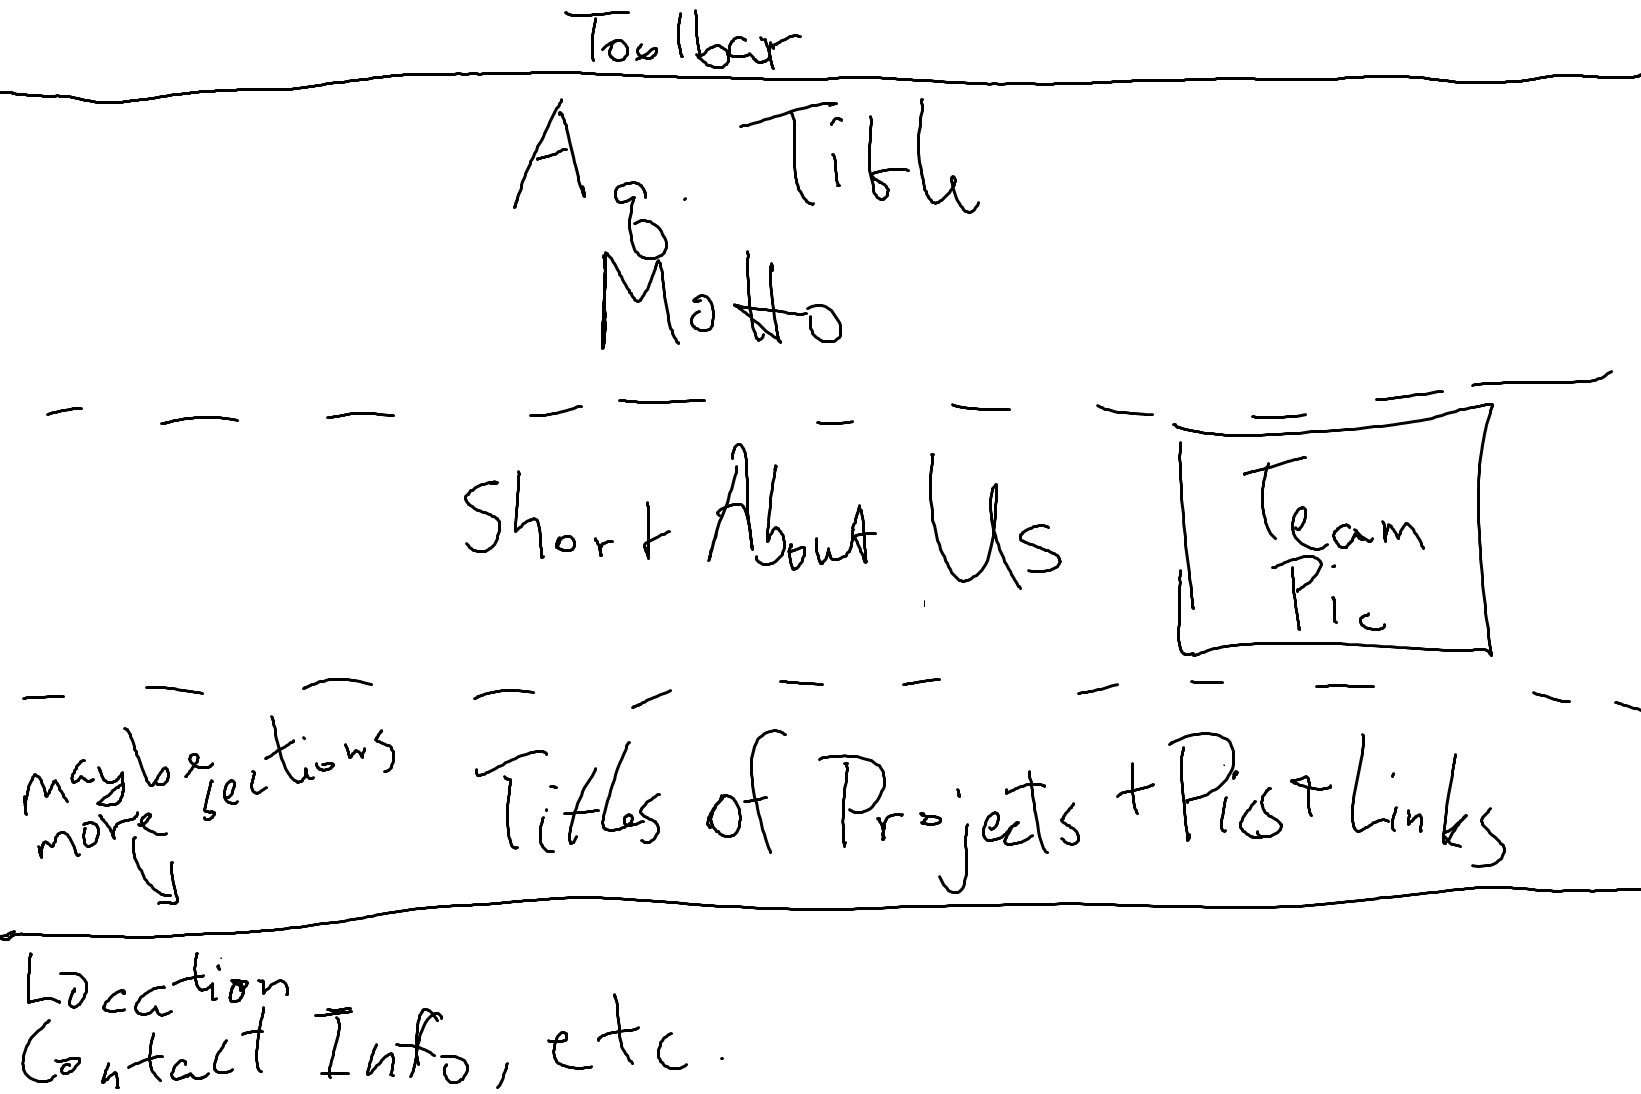 Toolbar
Ag. Title
Motto
Short About Us
Team
Pic
maybe
more sections
Titles of Projects + Pics + Links
Location
Contact Info, etc.